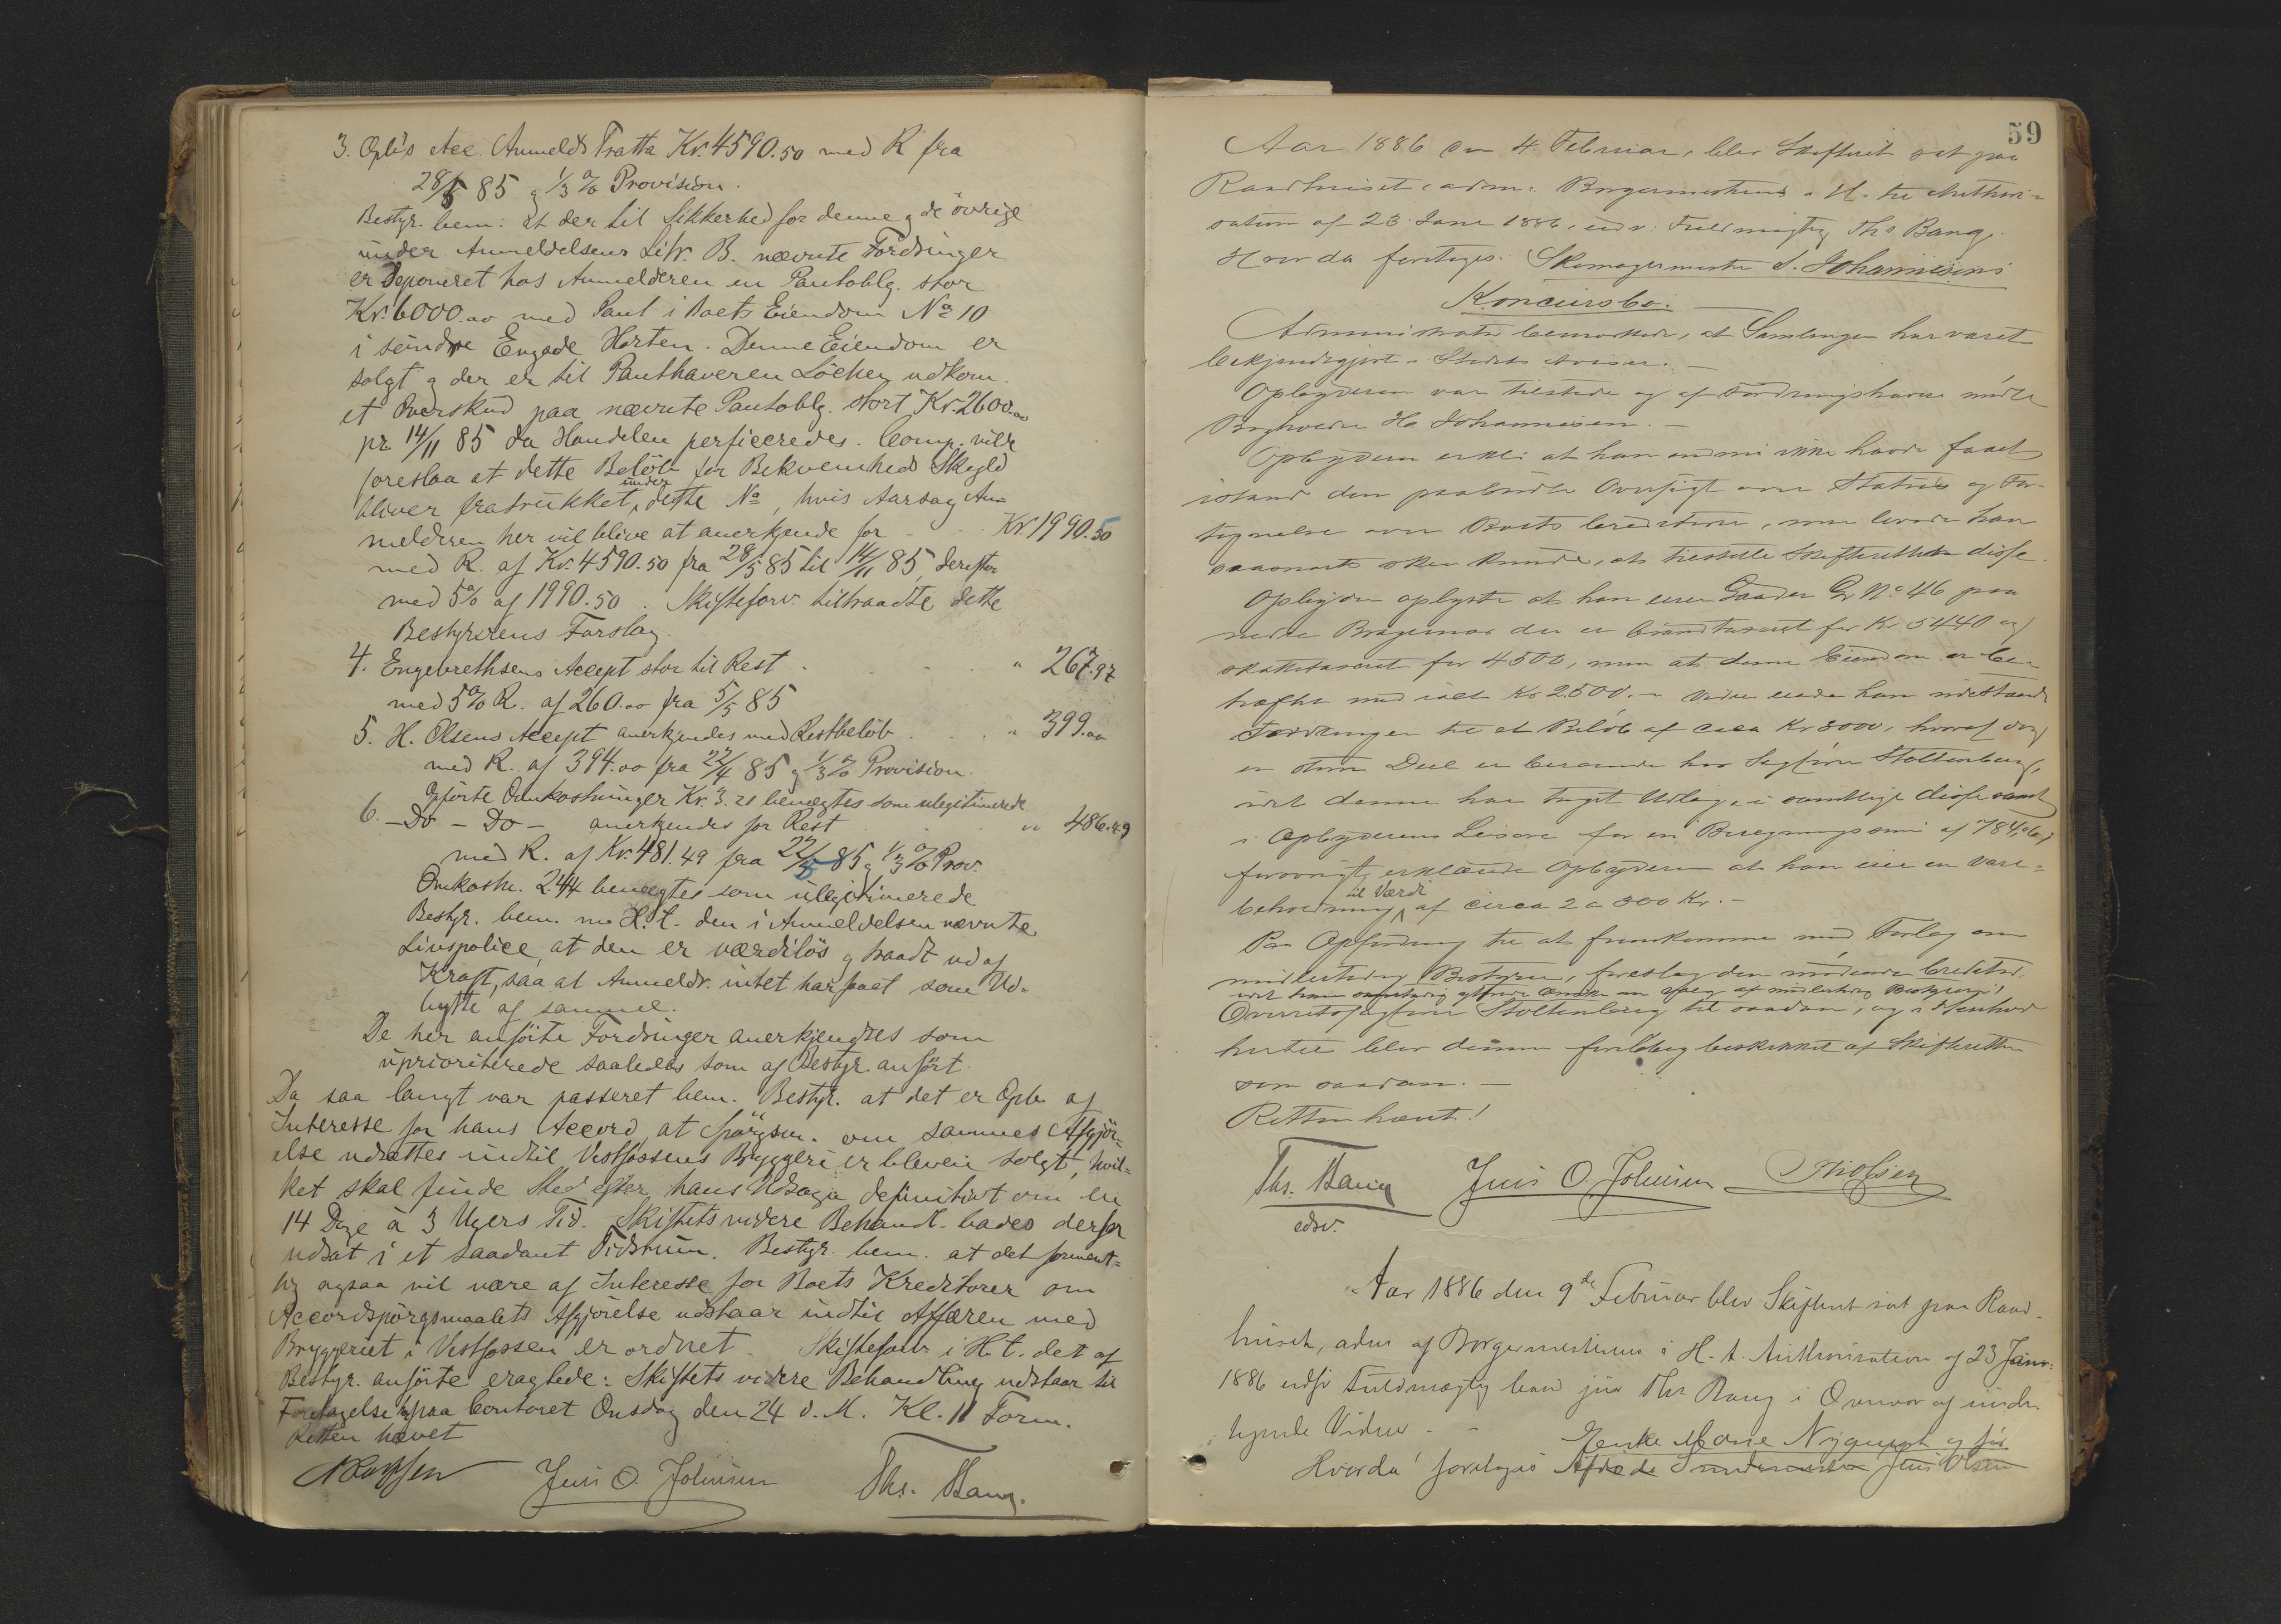 3. Opb's Acc. Anmelds Tratta Kr. 4590.50 med R fra
28/5 85 g 1/3 % Provision.
Bestyr. bem: at der til Sikkerhed for denne g de övrige
under Anmeldelsens Litr. B. nævnte Fordringer
er deponeret hos Anmelderen en Pantoblg. stor
Kr. 6000.00 med Pant i Boets Eiendom No 10
i söndre Engade Horten. Denne Eiendom er
solgt g der er til Panthaveren Löchen udkom.
et Overskud paa nævnte Pantoblg. stort Kr. 2600.00
pr. 14/11 85 da Handelen perficeredes. Comp. vilde
foreslaa at dette Belöb for Bekvemheds Skyld
bliver fratrukket under dette No, hvis Aarsag An-
melderen her vil blive at anerkjende for Kr. 1990.50
med R. af Kr. 4590.50 fra 28/5 85 til 14/11 85, derefter
med 5% af 1990.50. Skifteforv. tiltraadte dette
Bestyrerens Forslag.
4. Engebrethsens Accept stor til Rest " 267.97
med 5% R. af 260.00 fra 5/5 85
5. H. Olsens Accept anerkjendes med Restbelöb " 399.00
med R. af 394.00 fra 22/4 85 g 1/3 % Provision.
Opförte Omkostninger Kr. 3.21 benegtes som ulegitimerede
6. - Do - Do - anerkjendes for Rest " 486.49
med R. af Kr. 481.49 fra 22/5 85 g 1/3 % Prov.
Omkostn. 2.44 benegtes som ulegitimerede
Bestyr. bem. m H. t. den i Anmeldelsen nævnte
Livspolice, at den er værdilös g traadt ud af
Kraft, saa at Anmeldr. intet har faaet som Ud-
bytte af samme.
De her anförte Fordringer anerkjendtes som
uprioriterede saaledes som af Bestyr. anfört.
Da saa langt var passeret bem. Bestyr. at det er Opb. af
Interesse for hans Accord, at Spörgsm. om sammes Afgjör-
else udsættes indtil Vestfossens Bryggeri er bleven solgt, hvil-
ket skal finde Sted efter hans Udsagn definitivt om en
14 Dage à 3 Ugers Tid. Skiftets videre Behandl. bades derfor
udsat i et saadant Tidsrum. Bestyr. bem. at det forment-
lig ogsaa vil være af Interesse for Boets Kreditorer om
Accordspörgsmaalets Afgjörelse udstaar indtil Affæren med
Bryggeriet i Vestfossen er ordnet. Skifteforv. i H. t. det af
Bestyr. anförte eragtede: Skiftets videre Behandling udstaar til
Foretagelse paa Contoret Onsdag den 24 d. M. Kl. 11 Form.
Retten hævet
Jens O. Johnsen Ths. Bang.
59
Aar 1886 den 4. Februar, blev Skifteret sat paa
Raadhuset, adm. Borgermesteren i H. til Authori-
sation af 23 Janr 1886, ved v. Fuldmægtig Ths Bang.
Hvor da foretoges: Skomagermester S. Johannesens
Koncursbo.
Administrator bemærkede, at Samlingen har været
bekjendtgjort i Stedets Aviser.
Opbyderen var tilstede og af Fordringshavere mödte
Boghandler H. Johannesen.
Opbyderen erkl. at han endnu ikke havde faaet
istand den paabudte Oversigt over Status og For-
tegnelse over Boets Creditorer, men lovede han
saasnart skee kunde, at tilstille Skifteretten disse.
Opbyderen oplyste at han eier Gaarden Gr No 46 paa
nedre Bragernæs der er brandtaxeret for Kr 5440 og
skattetaxeret for 4500, men at denne Eiendom er be-
hæftet med ialt Kr 2500. Videre eiede han udestaaende
Fordringer til et Belöb af circa Kr 8000, hvoraf dog
en stor Deel er beroende hos Sagförer Stoltenberg,
idet denne har taget Udlæg i samtlige disse samt
i Opbyderens Leisöre for en Beregningssum af 784
forövrigt erklærede Opbyderen at han eier en Vare-
beholdning til Værdi af circa 2 a 300 Kr.
Paa Opfordring til at fremkomme med Forslag om
midlertidig Bestyrer, foreslog den mödende Creditor,
idet han samtidig yttrede Önske om Valg af midlertidig Bestyrer
Overretssagförer Stoltenberg til saadan, og i Henhold
hertil blev denne foreløbig beskikket af Skifteretten
som saadan.
Retten hævet!
Ths. Bang Jens O. Johnsen
edsv.
Aar 1886 den 9de Februar blev Skifteret sat paa Raad-
huset, adm af Borgermesteren i H. t. Authorisation af 23 Janr.
1886 edsv Fuldmægtig cand jur Ths Bang i Overvær af under-
tegnede Vidner.
Hvorda foretoges Enke Marie Nyquist og för
Afdöde Snedkermester Jens Olsen